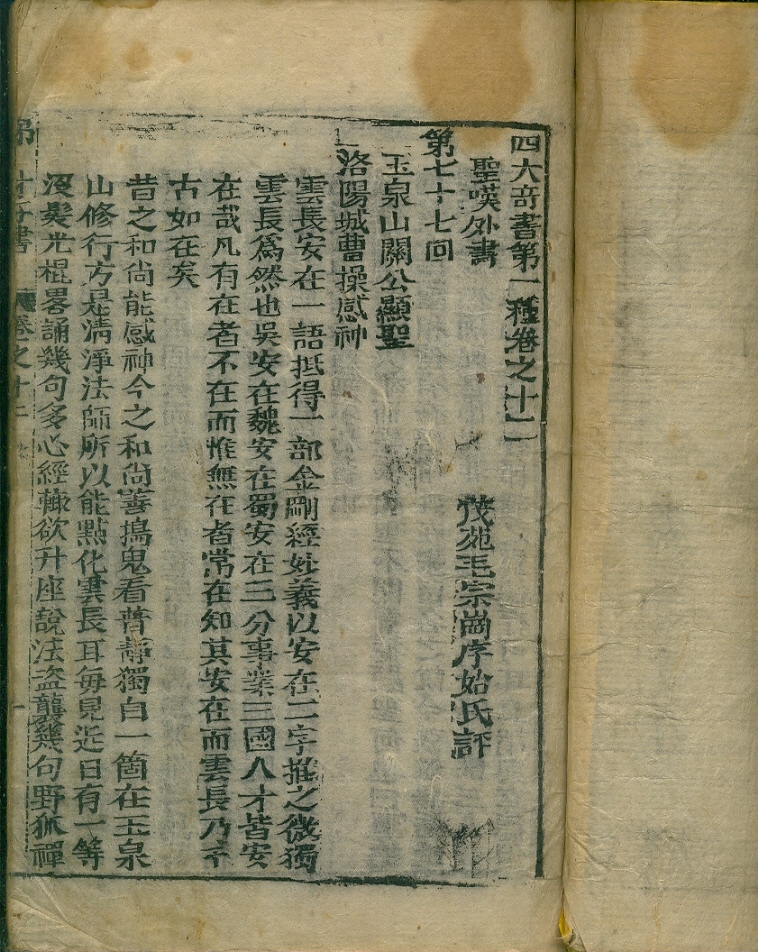 四大奇書第一種卷之十二
聖嘆外書
茂苑毛宗崗序始氏評
第七十七回
玉泉山關公顯聖
洛陽城曹操感神
雲長安在一語抵得一部金剛經妙義以安在二字推之微獨
雲長為然也吳安在魏安在蜀安在三分事業三國人才皆安
在哉凡有在者不在而惟無在者常在知其安在而雲長乃千
古如在矣
昔之和尚能感神今之和尚善搗鬼看普靜獨自一箇在玉泉
山修行方是清淨法師所以能點化雲長耳每見近日有一等
沒髮光棍畧誦幾句多心經輙欲升座說法盜襲幾句野狐禪
奇書
卷之十二